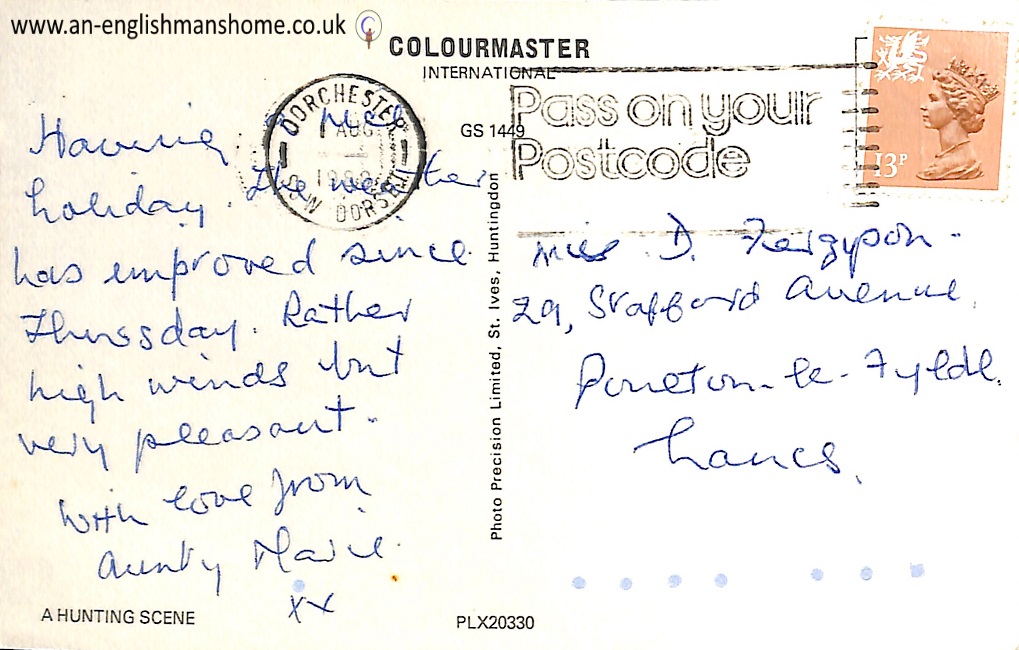 www.an-englishmanshome.co.uk
COLOURMASTER
INTERNATIONAL
GS 1449
DORCHESTER
AUG
S.W. DORSET
Pass on your
Postcode
13P
Having a nice
holiday. The weather
has improved since
Thursday. Rather
high winds but
very pleasant.
With love from
Aunty Marie.
xx
Photo Precision Limited, St. Ives, Huntingdon
Miss D. Fergyson.
29, Strafford Avenue,
Poulton-le-Fylde.
Lancs.
A HUNTING SCENE
PLX20330